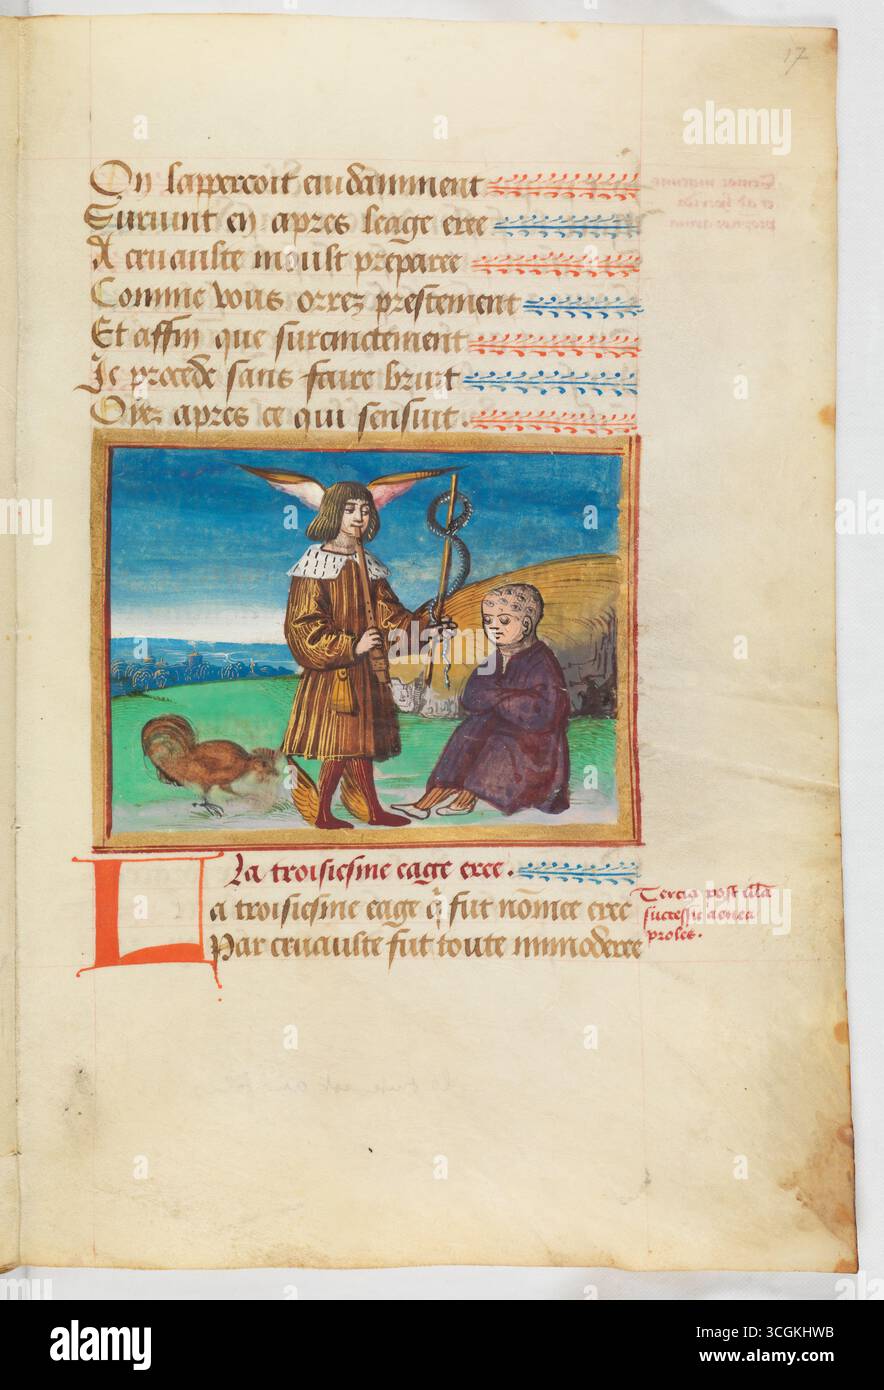 17
On lappercoit euidamment
Suruint en apres leage eree
A cruaulte moult preparee
Comme vous orrez prestement
Et affin que surcinctement
Je procede sans faire bruit
Oyez apres ce qui sensuit.
La troisiesme eage eree.
La troisiesme eage q̄ fut nōmee eree
Par cruaulte fut toute immoderee
Tercia post illā
successit aenea
proles.
alamy
Image ID: 3CGKHWB
www.alamy.com